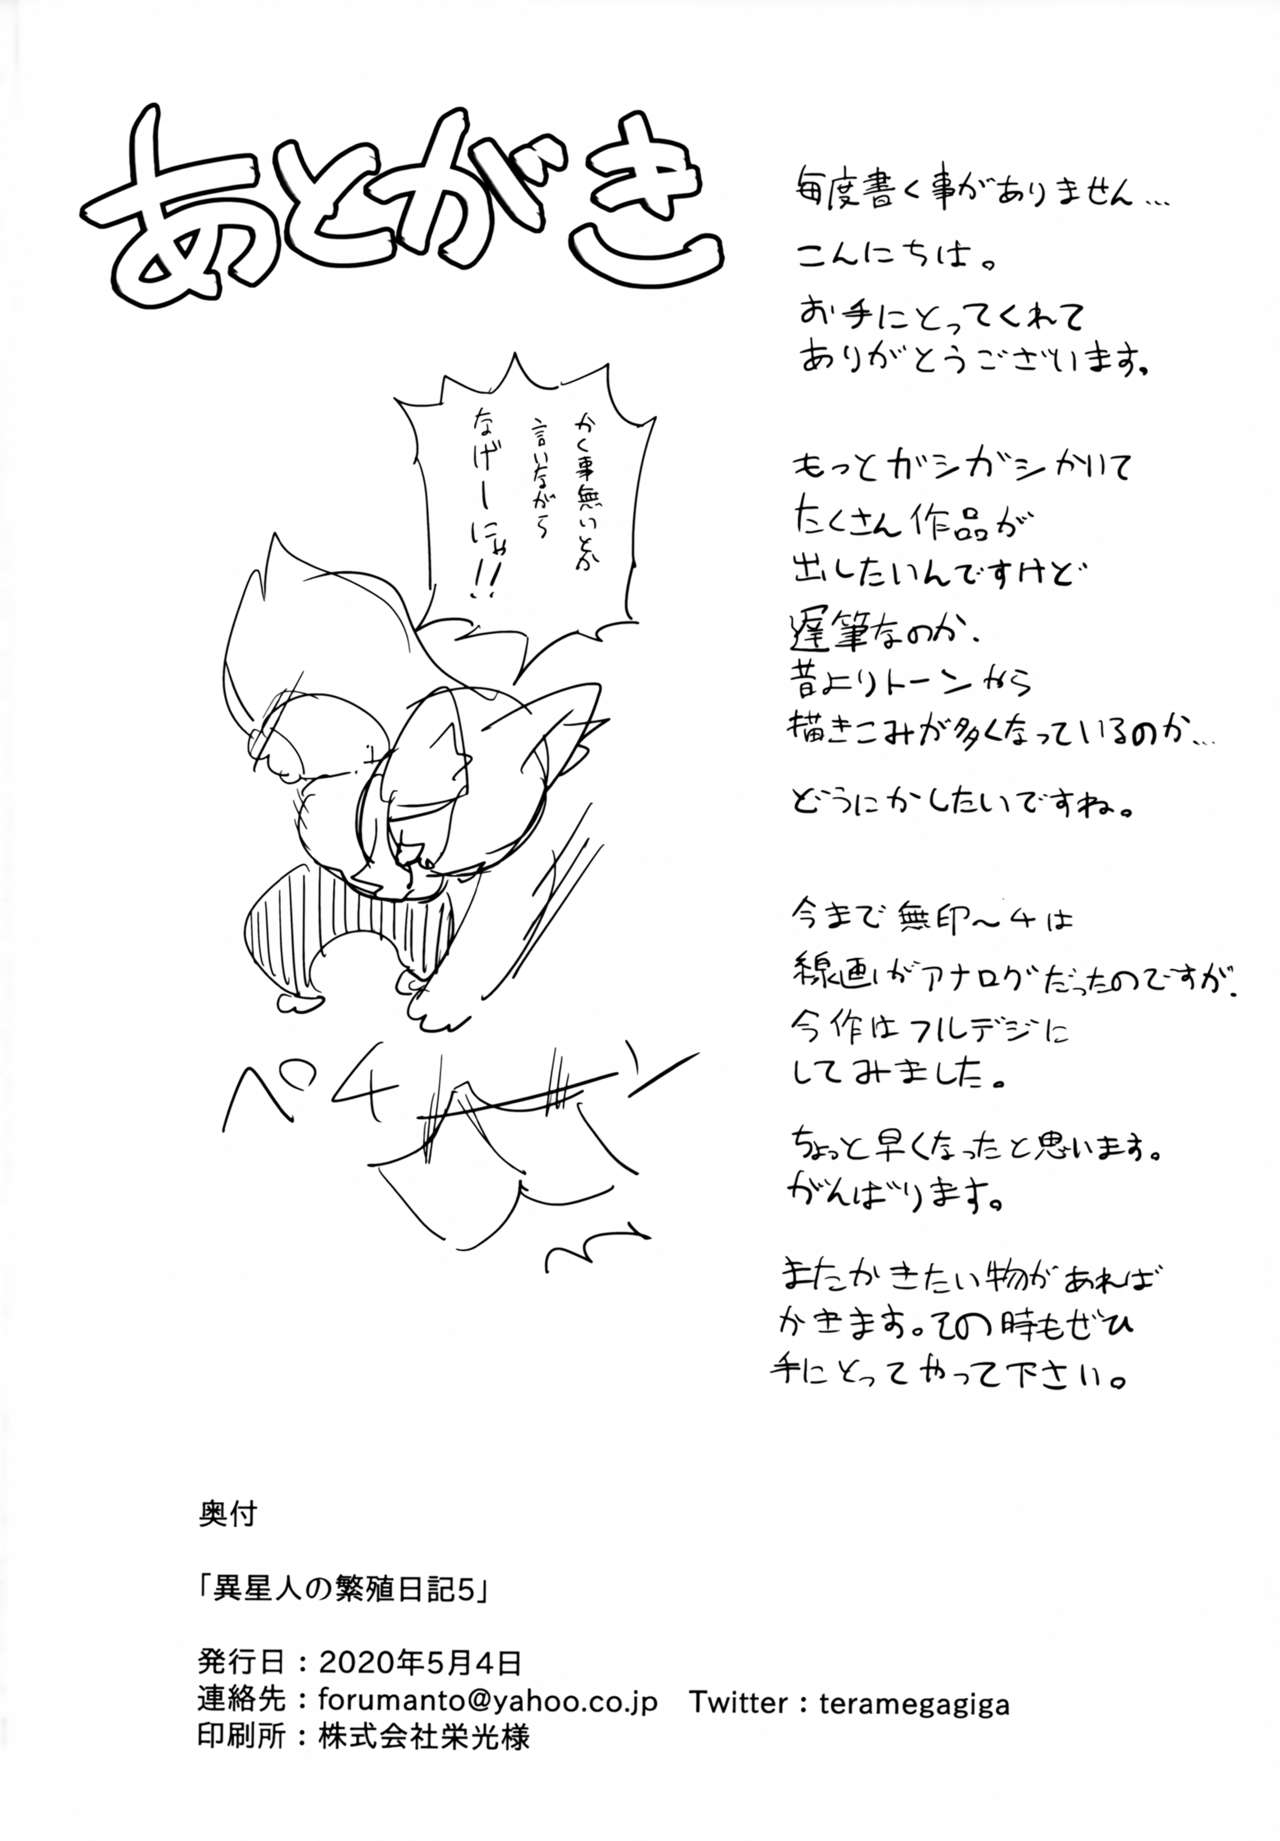 あとがき
毎度書く事がありません…
こんにちは。
お手にとってくれて
ありがとうございます。
もっとガシガシかいて
たくさん作品が
出したいんですけど
遅筆なのか、
昔よりトーンから
描きこみが多くなっているのか…
どうにかしたいですね。
今まで無印～4は
線画がアナログだったのですが、
今作はフルデジに
してみました。
ちょっと早くなったと思います。
がんばります。
またかきたい物があれば
かきます。その時もぜひ
手にとってやって下さい。
かく事無いとか
言いながら
なげーにゃ!!
ペチーン
奥付
「異星人の繁殖日記5」
発行日：2020年5月4日
連絡先：forumanto@yahoo.co.jp　Twitter：teramegagiga
印刷所：株式会社栄光様